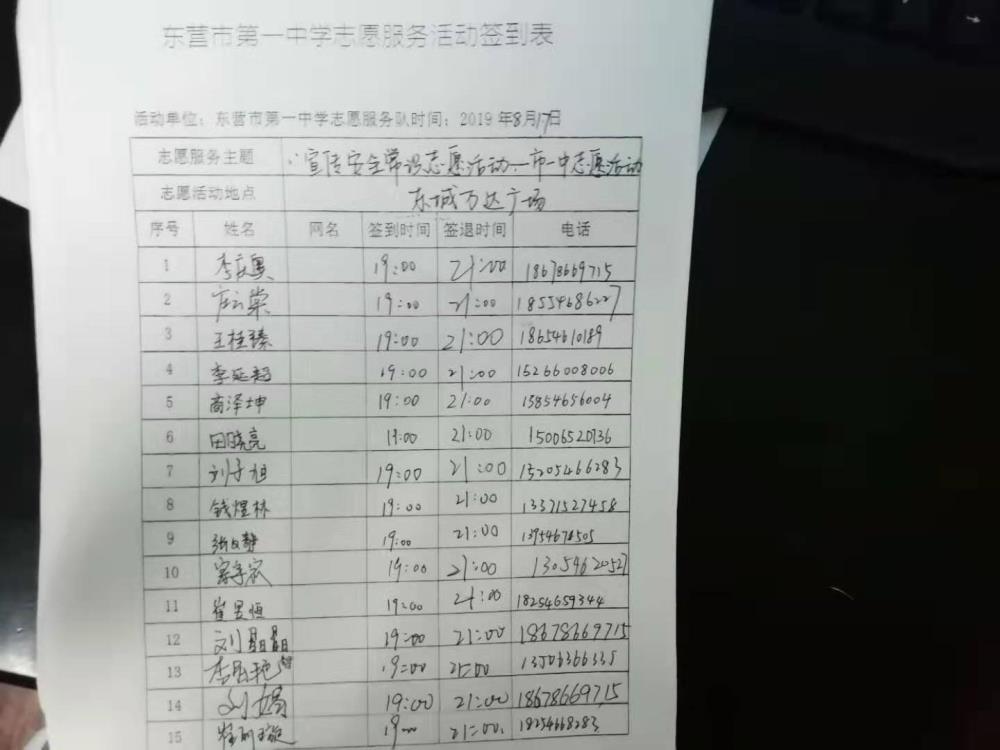 东营市第一中学志愿服务活动签到表
活动单位：东营市第一中学志愿服务队时间：2019年8月17日
志愿服务主题 宣传安全常识志愿活动——市一中志愿活动
志愿活动地点 东城万达广场
序号 姓名 网名 签到时间 签退时间 电话
1 19:00 21:00 18678669715
2 19:00 21:00 18554686227
3 王桂臻 19:00 21:00 18654610189
4 李延超 19:00 21:00 15266008006
5 商泽坤 19:00 21:00 13854656004
6 田晓亮 19:00 21:00 15006520736
7 刘子旭 19:00 21:00 15205466283
8 钱煜林 19:00 21:00 13371527458
9 张文静 19:00 21:00
10 19:00 21:00 13054620527
11 崔昱恒 19:00 21:00 18254659344
12 刘晶晶 19:00 21:00 18678669715
13 19:00 21:00
14 刘娟 19:00 21:00 18678669715
15 21:00. 18254668283